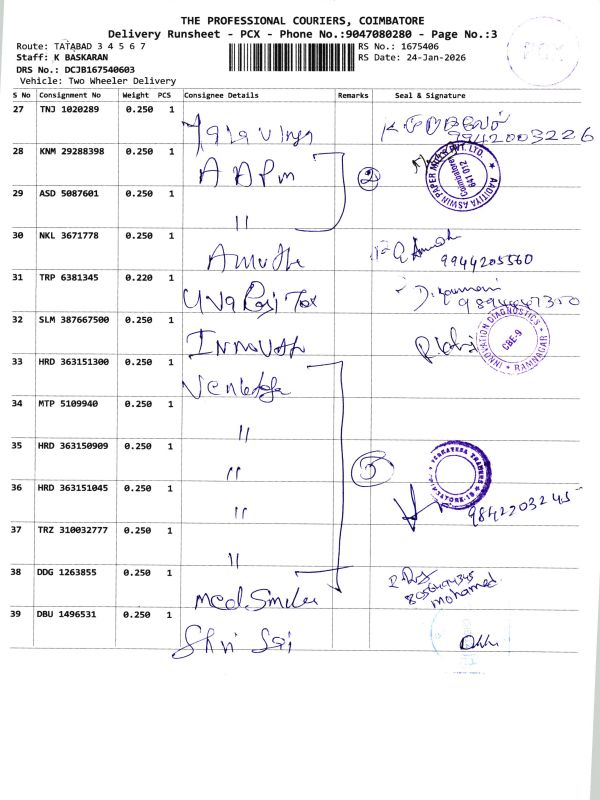 THE PROFESSIONAL COURIERS, COIMBATORE
Delivery Runsheet - PCX - Phone No.:9047080280 - Page No.:3
Route: TATABAD 3 4 5 6 7
RS No.: 1675406
Staff: K BASKARAN
RS Date: 24-Jan-2026
DRS No.: DCJB167540603
Vehicle: Two Wheeler Delivery
S No Consignment No Weight PCS Consignee Details Remarks Seal & Signature
27 TNJ 1020289 0.250 1
9942003226
28 KNM 29288398 0.250 1
ADPM
2
AADITIYA ASWIN PAPER MILLS PVT. LTD.
Coimbatore
641 012
29 ASD 5087601 0.250 1
"
30 NKL 3671778 0.250 1
Amudh
9944205560
31 TRP 6381345 0.220 1
32 SLM 387667500 0.250 1
INNOVATION DIAGNOSTICS
CBE-9
RAMNAGAR
33 HRD 363151300 0.250 1
34 MTP 5109940 0.250 1
"
35 HRD 363150909 0.250 1
"
5
VENKATESA TRADERS
36 HRD 363151045 0.250 1
"
9842203245
37 TRZ 310032777 0.250 1
"
38 DDG 1263855 0.250 1
Med.Smiles
mohamed
39 DBU 1496531 0.250 1
Shri Sai